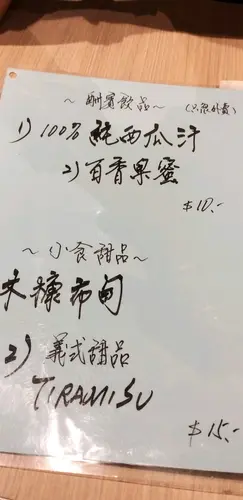 ～酬賓飲品～ (只限外賣)
1) 100% 純西瓜汁
2) 百香果蜜
$10.-
～小食甜品～
木糠布甸
2) 義式甜品
TIRAMISU
$15.-